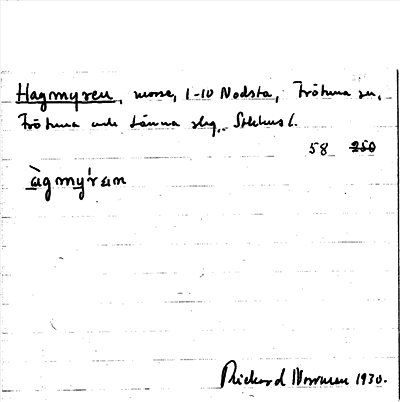 Hagmyren, mosse, 1-10 Nodsta, Frötuna sn,
Frötuna och Länna slg, Sthlms l.
58 250
àgmy'ran
Rickard Norman 1930.